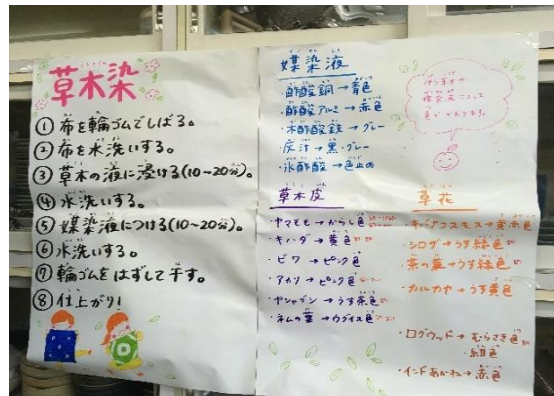 草木染
① 布を輪ゴムでしばる。
② 布を水洗いする。
③ 草木の液に浸ける(10~20分)。
④ 水洗いする。
⑤ 媒染液につける(10~20分)。
⑥ 水洗いする。
⑦ 輪ゴムをはずして干す。
⑧ 仕上がり!
媒染液
・酢酸銅→青色
・酢酸アルミ→赤色
・木酢酸鉄→グレー
・灰汁→黒・グレー
・氷酢酸→色止め
草木皮
・ヤマモモ→からし色
・キハダ→黄色
・ビワ→ピンク色
・アカソ→ピンク色
・ヤシャブシ→うす茶色
・ネムの葉→ウグイス色
草花
・キバナコスモス→黄赤色
・シロダ→うす緑色
・茶の葉→うす緑色
・カルカヤ→うす黄色
・ログウッド→むらさき色
紺色
・インドあかね→赤色